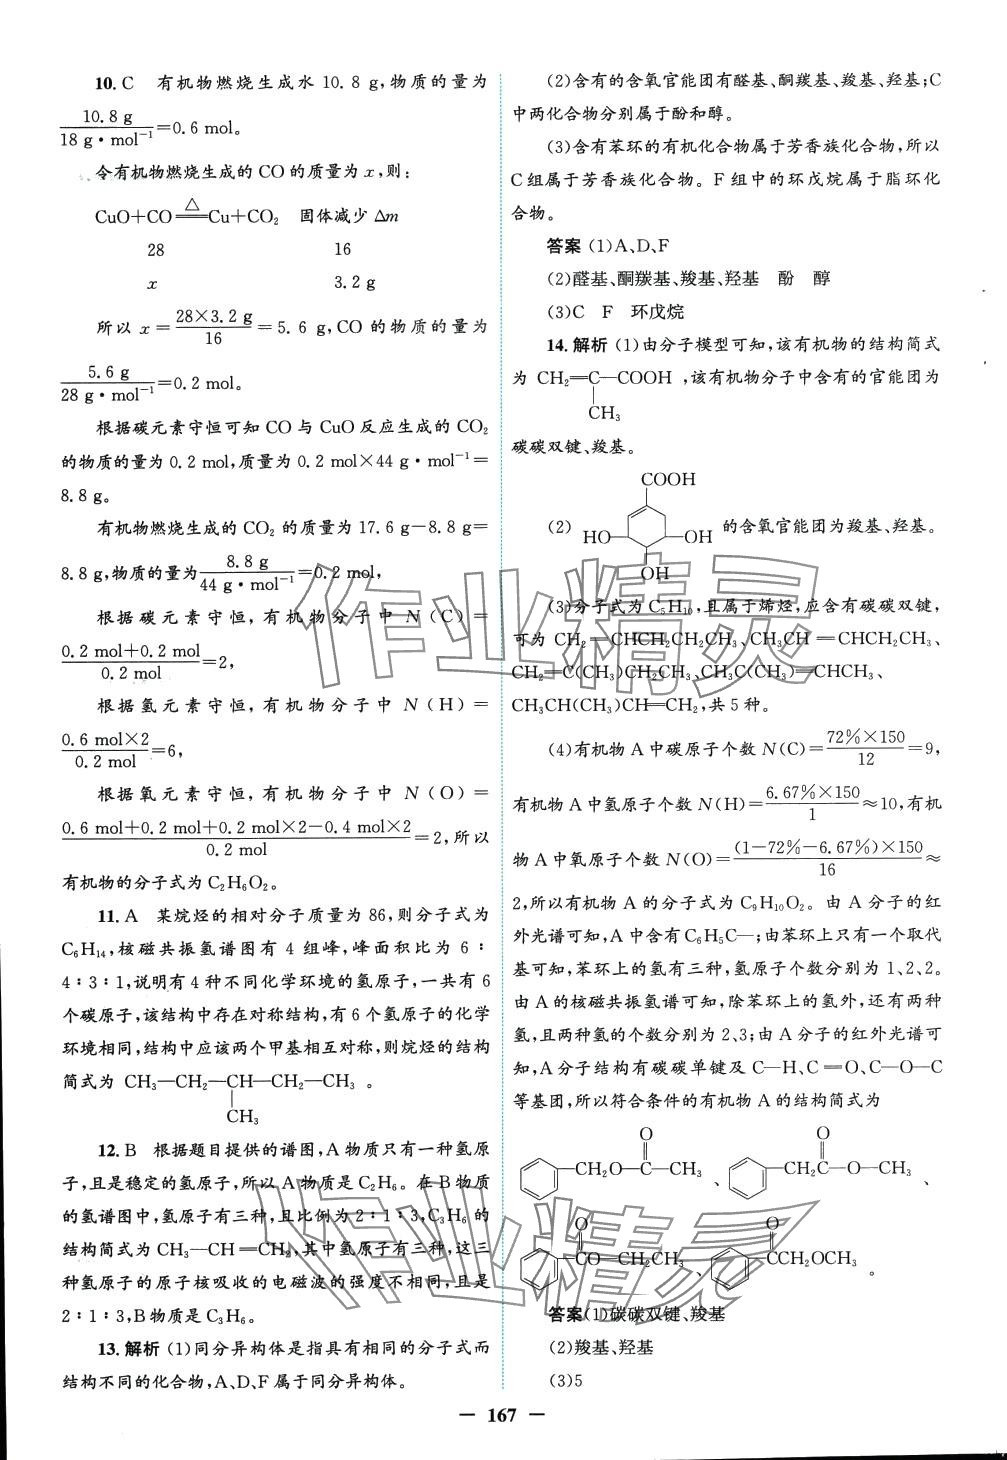 10. C 有机物燃烧生成水 10.8 g,物质的量为
10.8 g / 18 g·mol⁻¹ =0.6 mol。
令有机物燃烧生成的 CO 的质量为 x,则:
CuO+CO =△= Cu+CO₂ 固体减少 Δm
28 16
x 3.2 g
所以 x = 28×3.2 g / 16 = 5.6 g,CO 的物质的量为
5.6 g / 28 g·mol⁻¹ =0.2 mol。
根据碳元素守恒可知 CO 与 CuO 反应生成的 CO₂
的物质的量为 0.2 mol,质量为 0.2 mol×44 g·mol⁻¹=
8.8 g。
有机物燃烧生成的 CO₂ 的质量为 17.6 g−8.8 g=
8.8 g,物质的量为 8.8 g / 44 g·mol⁻¹ =0.2 mol,
根据碳元素守恒,有机物分子中 N(C)=
0.2 mol+0.2 mol / 0.2 mol =2,
根据氢元素守恒,有机物分子中 N(H)=
0.6 mol×2 / 0.2 mol =6,
根据氧元素守恒,有机物分子中 N(O)=
0.6 mol+0.2 mol+0.2 mol×2−0.4 mol×2 / 0.2 mol =2,所以
有机物的分子式为 C₂H₆O₂。
11. A 某烷烃的相对分子质量为 86,则分子式为
C₆H₁₄,核磁共振氢谱图有 4 组峰,峰面积比为 6∶
4∶3∶1,说明有 4 种不同化学环境的氢原子,一共有 6
个碳原子,该结构中存在对称结构,有 6 个氢原子的化学
环境相同,结构中应该两个甲基相互对称,则烷烃的结构
简式为 CH₃—CH₂—CH—CH₂—CH₃ 。
CH₃
12. B 根据题目提供的谱图,A 物质只有一种氢原
子,且是稳定的氢原子,所以 A 物质是 C₂H₆。在 B 物质
的氢谱图中,氢原子有三种,且比例为 2∶1∶3,C₃H₆ 的
结构简式为 CH₃—CH=CH₂,其中氢原子有三种,这三
种氢原子的原子核吸收的电磁波的强度不相同,且是
2∶1∶3,B 物质是 C₃H₆。
13. 解析 (1)同分异构体是指具有相同的分子式而
结构不同的化合物,A、D、F 属于同分异构体。
(2)含有的含氧官能团有醛基、酮羰基、羧基、羟基;C
中两化合物分别属于酚和醇。
(3)含有苯环的有机化合物属于芳香族化合物,所以
C 组属于芳香族化合物。F 组中的环戊烷属于脂环化
合物。
答案 (1)A、D、F
(2)醛基、酮羰基、羧基、羟基 酚 醇
(3)C F 环戊烷
14. 解析 (1)由分子模型可知,该有机物的结构简式
为 CH₂=C—COOH ,该有机物分子中含有的官能团为
CH₃
碳碳双键、羧基。
COOH
(2) HO OH 的含氧官能团为羧基、羟基。
OH
(3)分子式为 C₅H₁₀,且属于烯烃,应含有碳碳双键,
可为 CH₂=CHCH₂CH₂CH₃、CH₃CH=CHCH₂CH₃、
CH₂=C(CH₃)CH₂CH₃、CH₃C(CH₃)=CHCH₃、
CH₃CH(CH₃)CH=CH₂,共 5 种。
(4)有机物 A 中碳原子个数 N(C)= 72%×150 / 12 =9,
有机物 A 中氢原子个数 N(H)= 6.67%×150 / 1 ≈10,有机
物 A 中氧原子个数 N(O)= (1−72%−6.67%)×150 / 16 ≈
2,所以有机物 A 的分子式为 C₉H₁₀O₂。由 A 分子的红
外光谱可知,A 中含有 C₆H₅C—;由苯环上只有一个取代
基可知,苯环上的氢有三种,氢原子个数分别为 1、2、2。
由 A 的核磁共振氢谱可知,除苯环上的氢外,还有两种
氢,且两种氢的个数分别为 2、3;由 A 分子的红外光谱可
知,A 分子结构有碳碳单键及 C—H、C=O、C—O—C
等基团,所以符合条件的有机物 A 的结构简式为
O O
CH₂O—C—CH₃ 、 CH₂C—O—CH₃ 、
O O
CO—CH₂CH₃ 、 CCH₂OCH₃ 。
答案 (1)碳碳双键、羧基
(2)羧基、羟基
(3)5
— 167 —
作业精灵
作业精灵